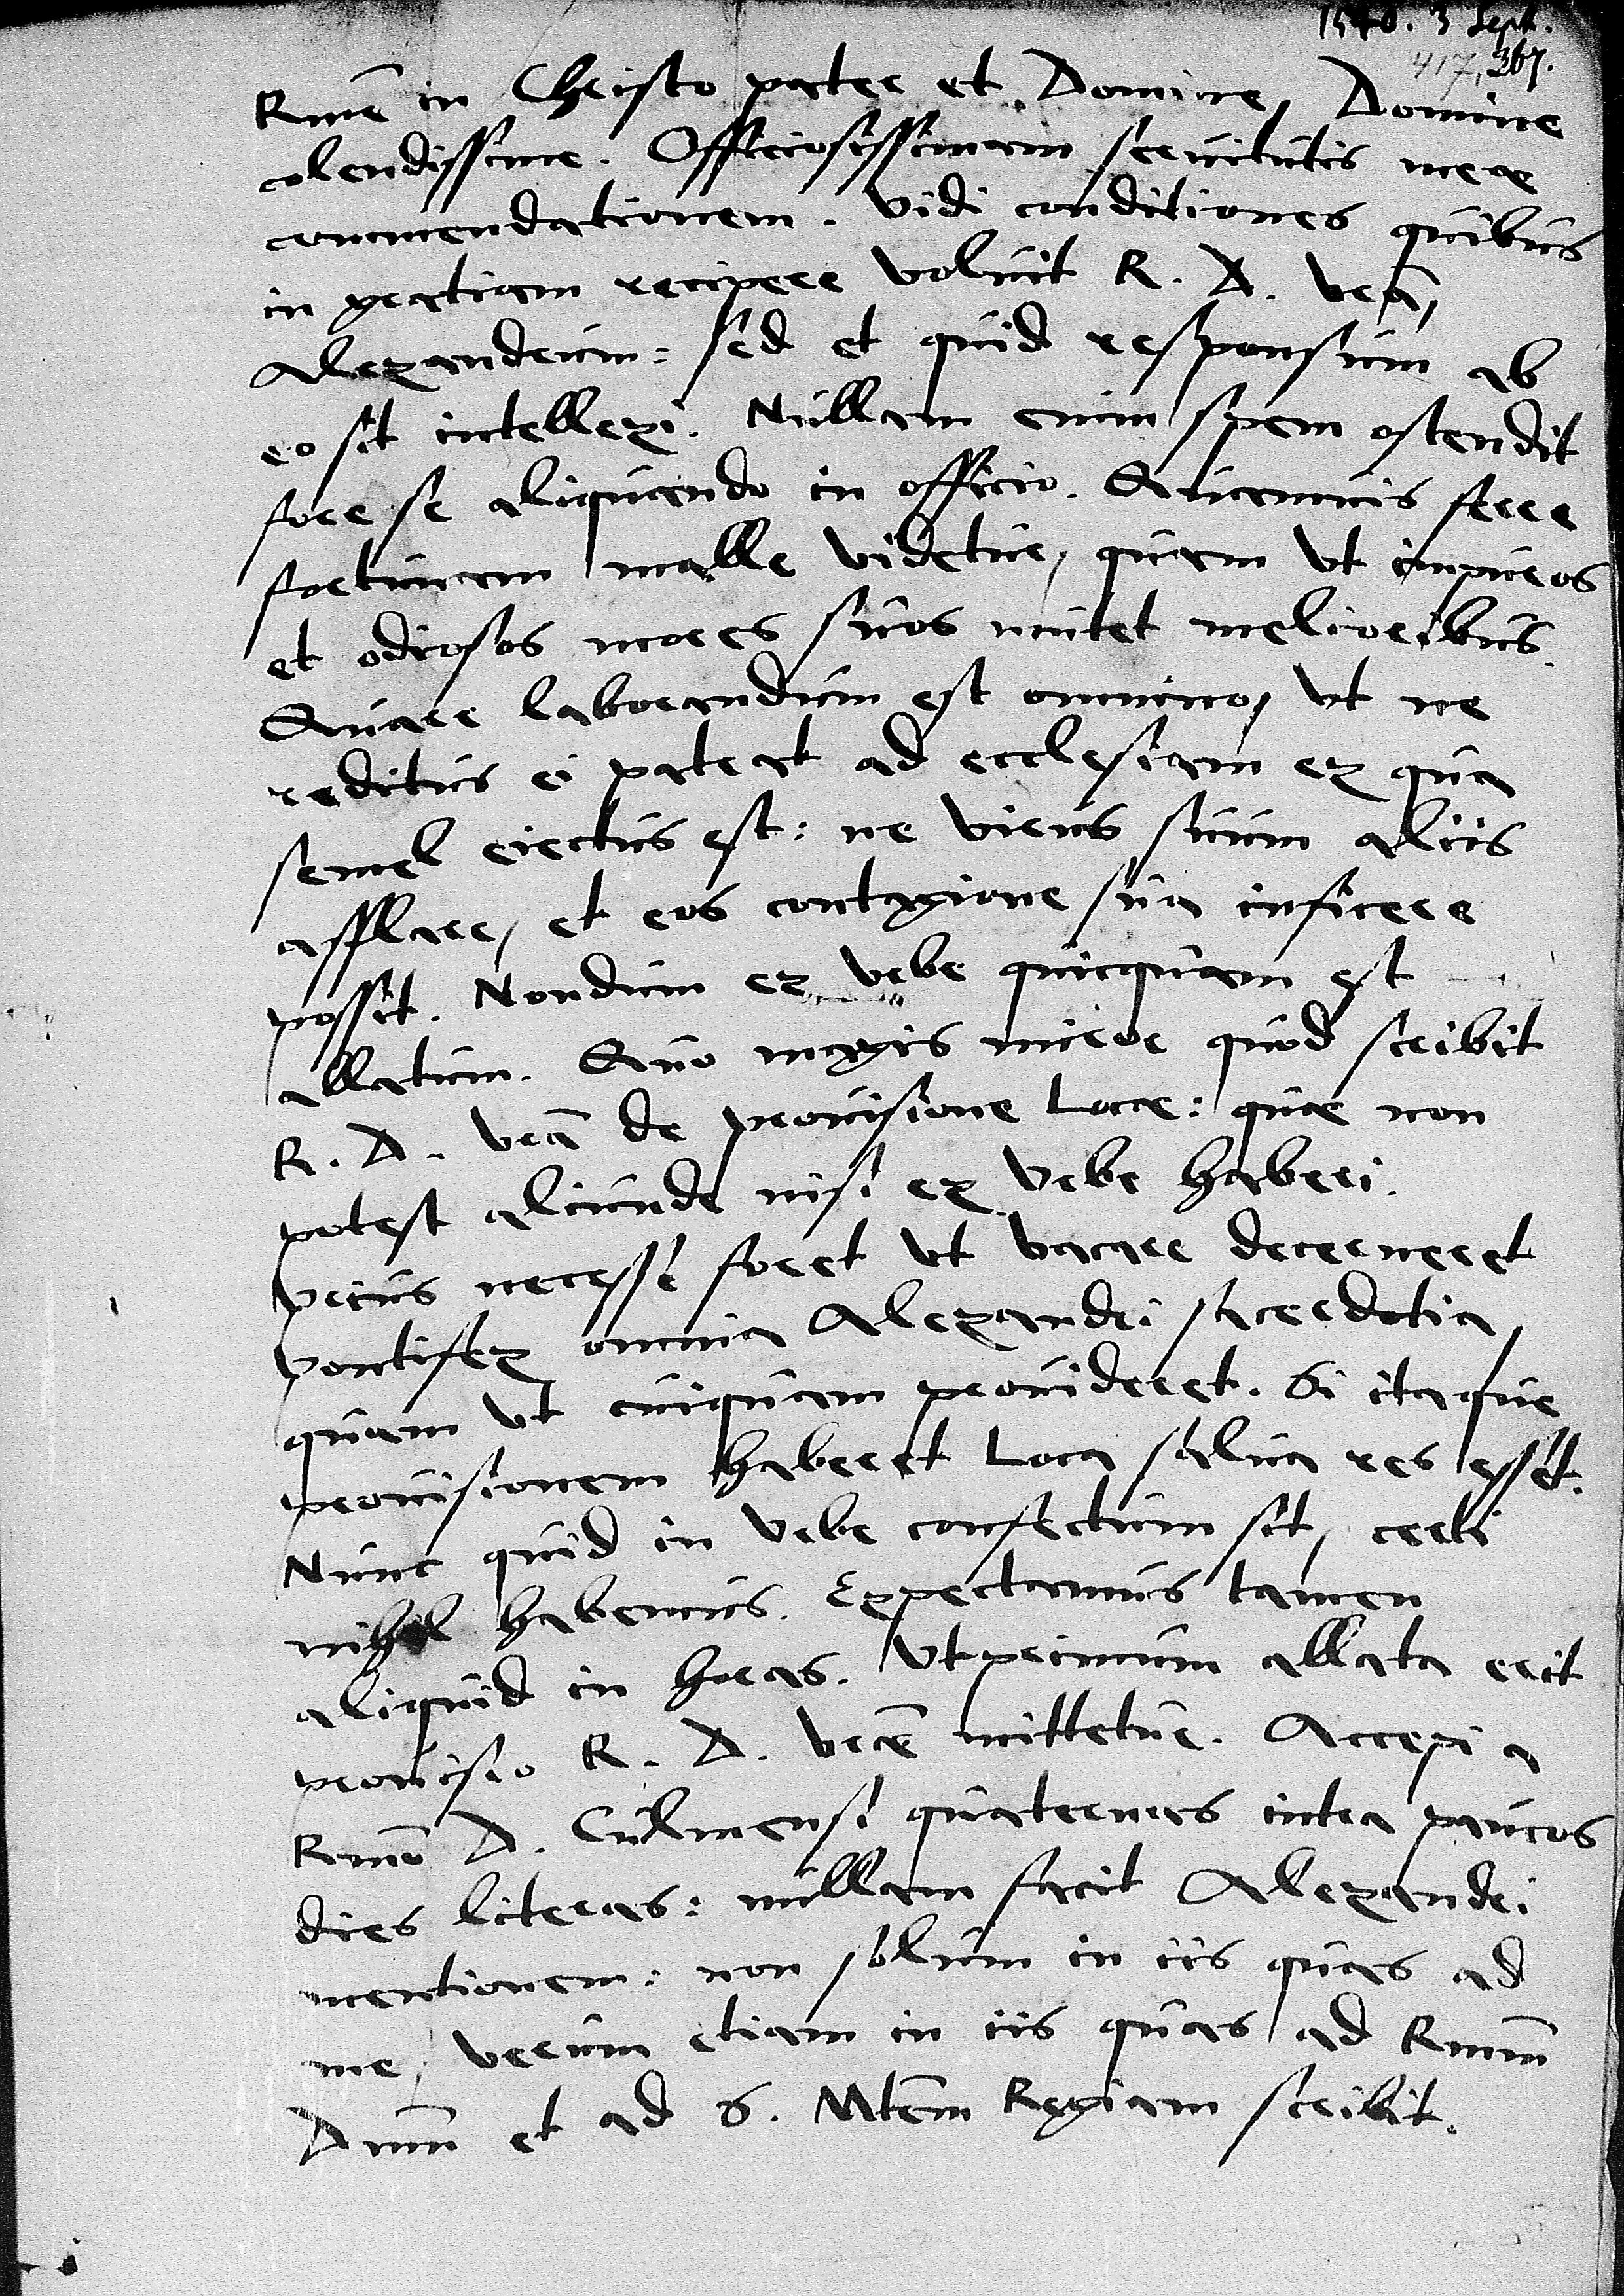 1540. 3 Sept.
417, 367.
Rme in Christo pater et Domine, Domine
colendissime. Officiosissimam seruitutis meae
commendationem. Vidi conditiones quibus
in gratiam recipere voluit R. D. vra,
Alexandrum: sed et quid responsum ab
eo sit intellexi. Nullam enim spem ostendit
fore se aliquando in officio. Quamuis ferre
fortunam malle videtur, quam vt impuros
et odiosos mores suos mutet melioribus.
Quare laborandum est omnino, vt ne
reditus ei pateat ad ecclesiam ex qua
semel eiectus est: ne virus suum aliis
afflare, et eos contagione sua inficere
possit. Nondum ex vrbe quicquam est
allatum. Quo magis miror quod scribit
R. D. vra de prouisione Locae: quae non
potest aliunde nisi ex Vrbe haberi.
Prius necesse foret vt vacare decerneret
Pontifex omnia Alexandri sacerdotia,
quam vt cuiquam prouideret. Si itaque
prouisionem haberet Loca salua res esset.
Nunc quid in Vrbe confectum sit, certi
nihil habemus. Expectamus tamen
aliquid in horas. Vtprimum allata erit
prouisio R. D. vrae mittetur. Accepi a
Rmo D. Culmensi quaternas intra paucos
dies literas: nullam facit Alexandri
mentionem: non solum in iis quas ad
me, verum etiam in iis quas ad Rmum
Dnum et ad S. Mtem Regiam scribit.